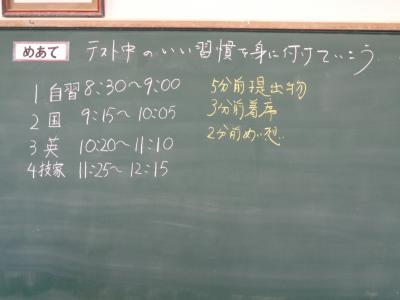 めあて テスト中のいい習慣を身に付けていこう
1 自習 8:30〜9:00
2 国 9:15〜10:05
3 英 10:20〜11:10
4 技家 11:25〜12:15
5分前提出物
3分前着席
2分前めい想